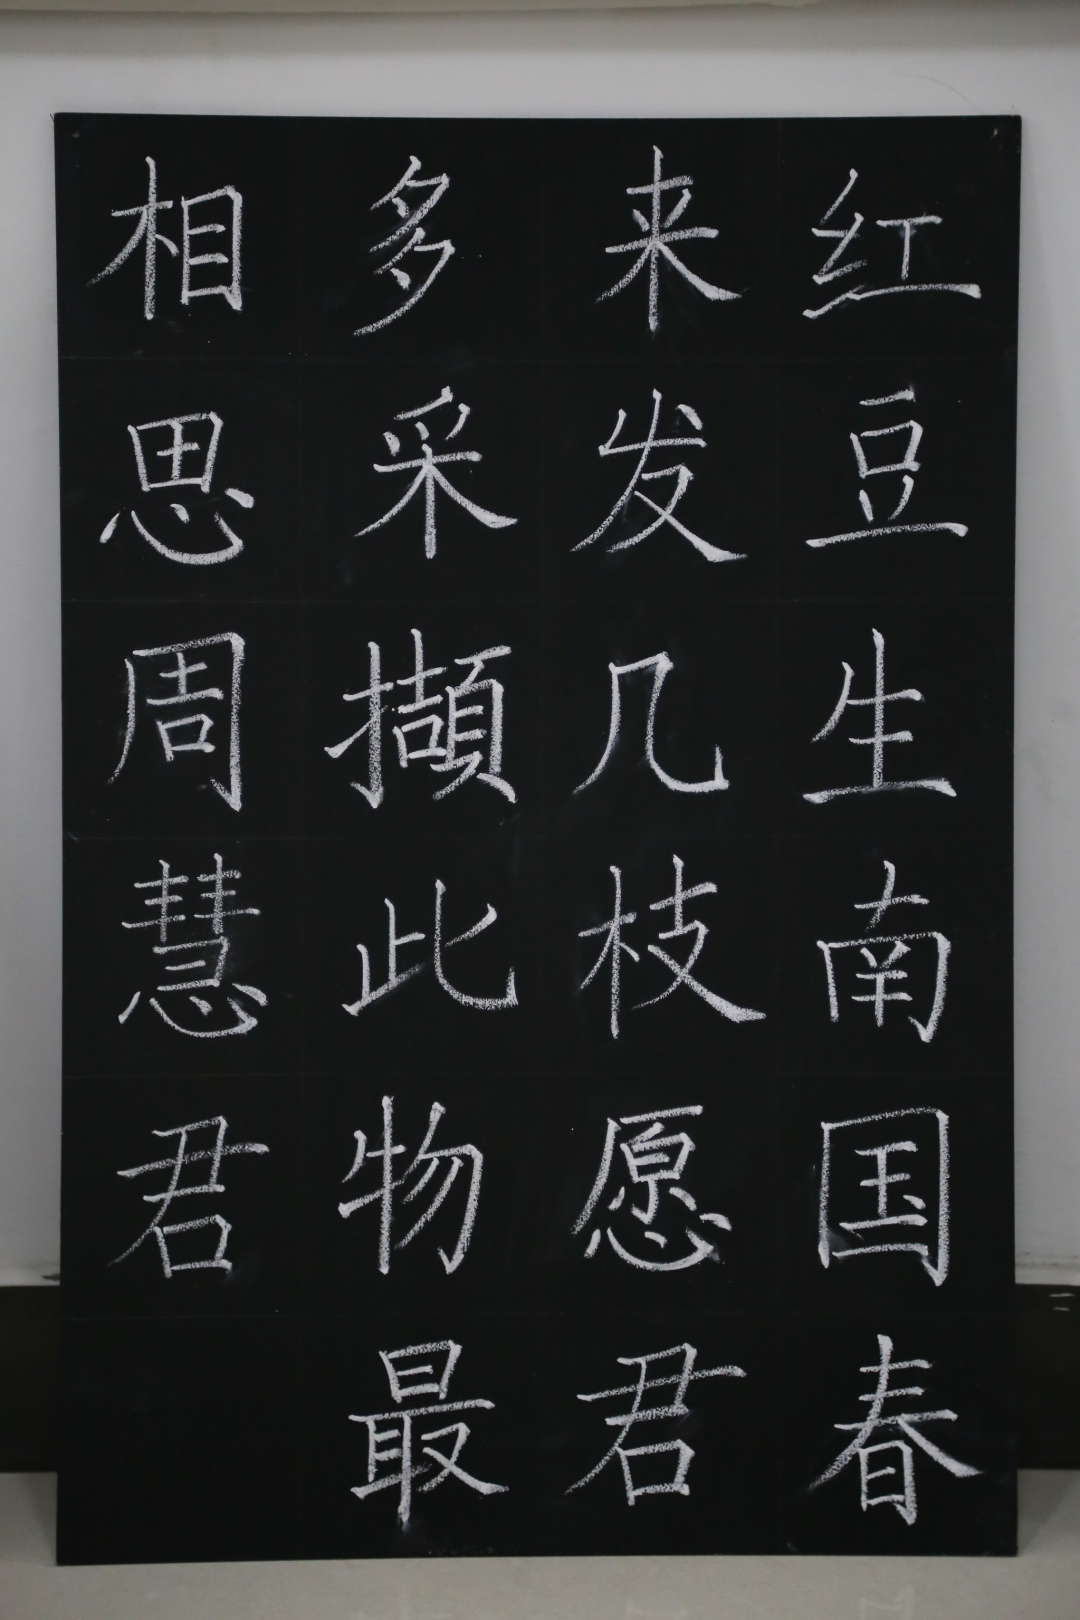 红豆生南国春
来发几枝愿君
多采撷此物最
相思周慧君